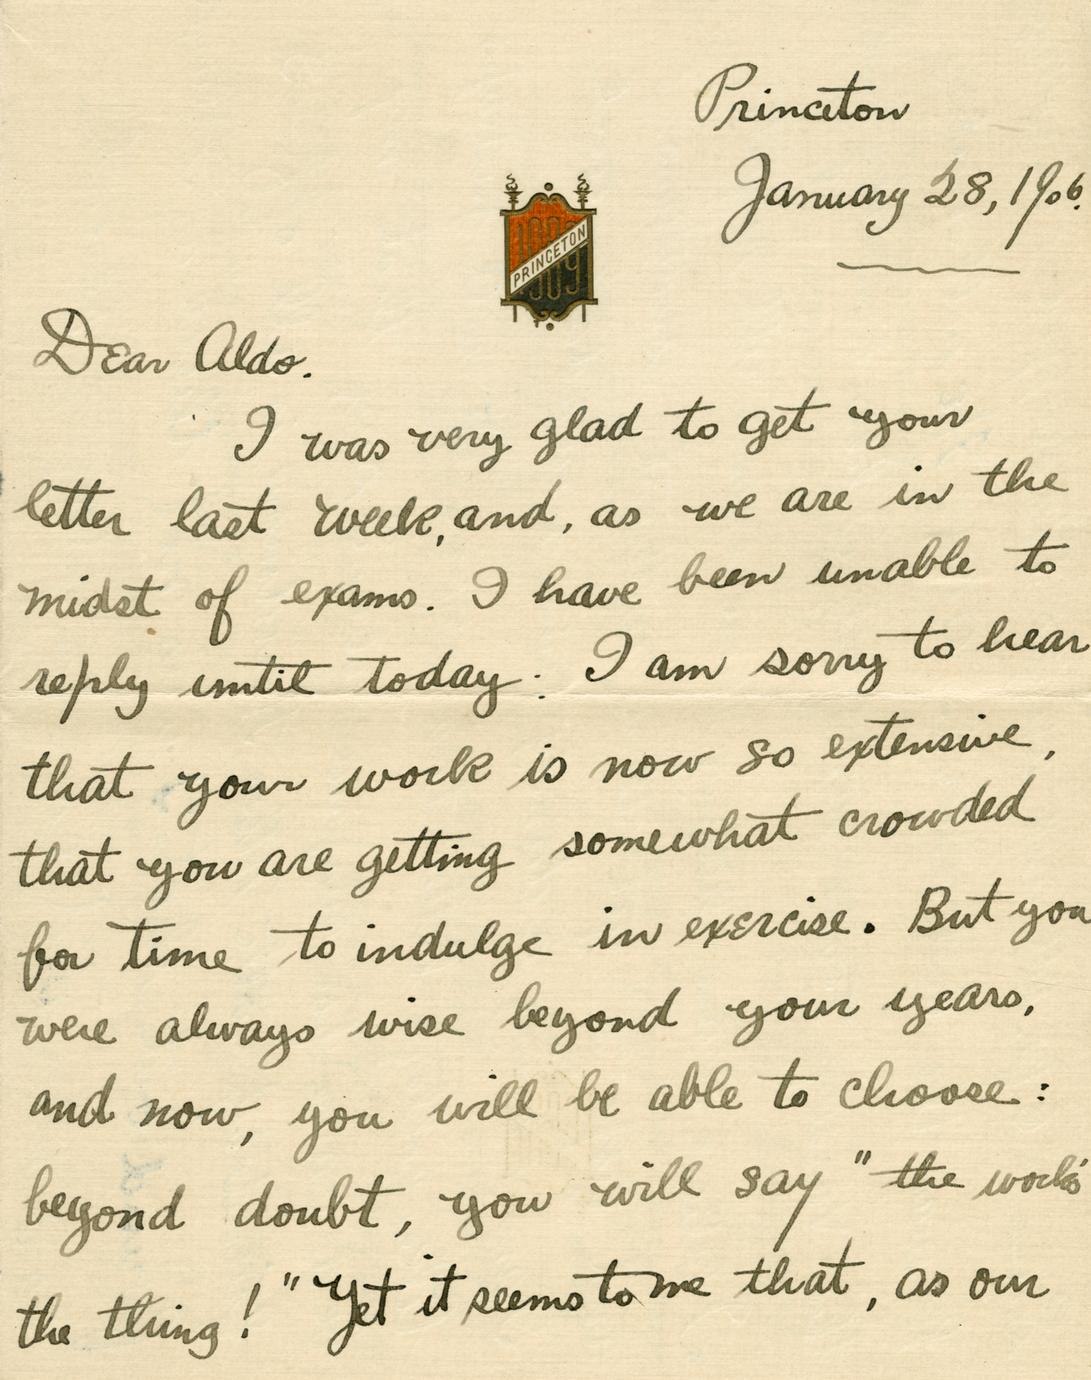 Princeton
January 28, 1906.
PRINCETON
1909
Dear Aldo.
I was very glad to get your
letter last week, and, as we are in the
midst of exams. I have been unable to
reply until today. I am sorry to hear
that your work is now so extensive,
that you are getting somewhat crowded
for time to indulge in exercise. But you
were always wise beyond your years,
and now, you will be able to choose:
beyond doubt, you will say "the work's
the thing!" Yet it seems to me that, as our